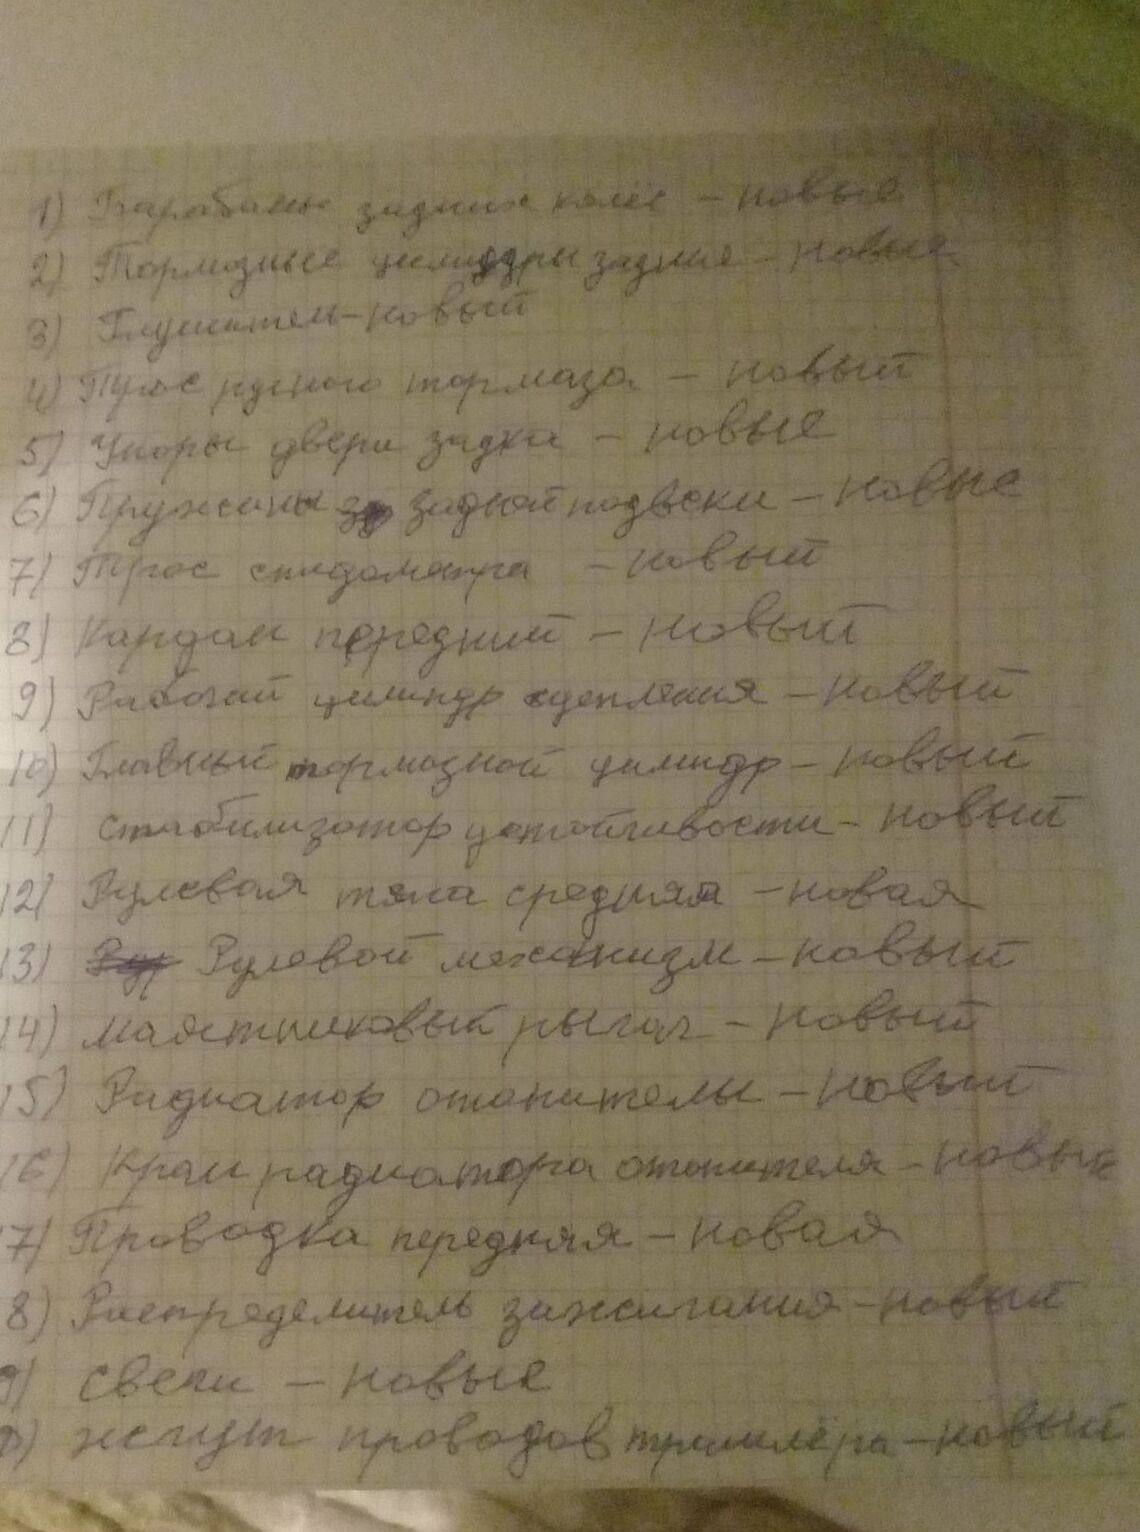 1) Барабаны задних колёс - новые
2) Тормозные цилиндры задние - новые
3) Глушитель - новый
4) Трос ручного тормаза - новый
5) Упоры двери задка - новые
6) Пружины задней подвески - новые
7) Трос спидометра - новый
8) Кардан передний - новый
9) Рабочий цилиндр сцепления - новый
10) Главный тормозной цилиндр - новый
11) Стабилизатор устойчивости - новый
12) Рулевая тяга средняя - новая
13) Рулевой механизм - новый
14) маятниковый рычаг - новый
15) Радиатор отопителы - новый
16) Кран радиатора отопителя - новый
17) Проводка передняя - новая
8) Распределитель зажигания - новый
9) свечи - новые
0) жгут проводов трамлёра - новый